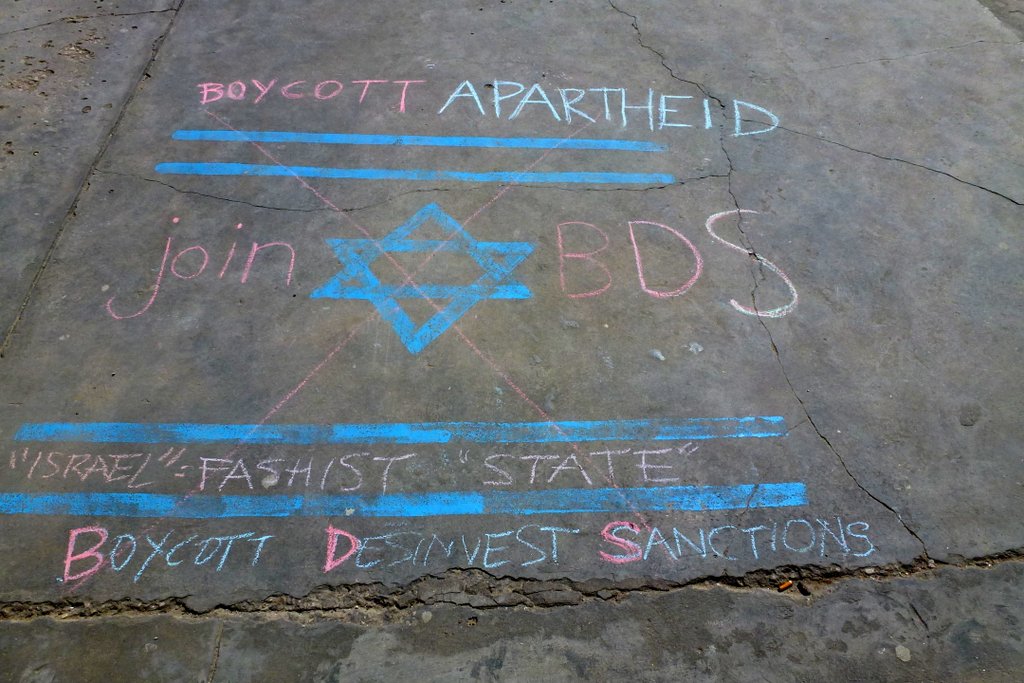 BOYCOTT APARTHEID
join BDS
"ISRAEL"=FASHIST "STATE"
BOYCOTT DESINVEST SANCTIONS